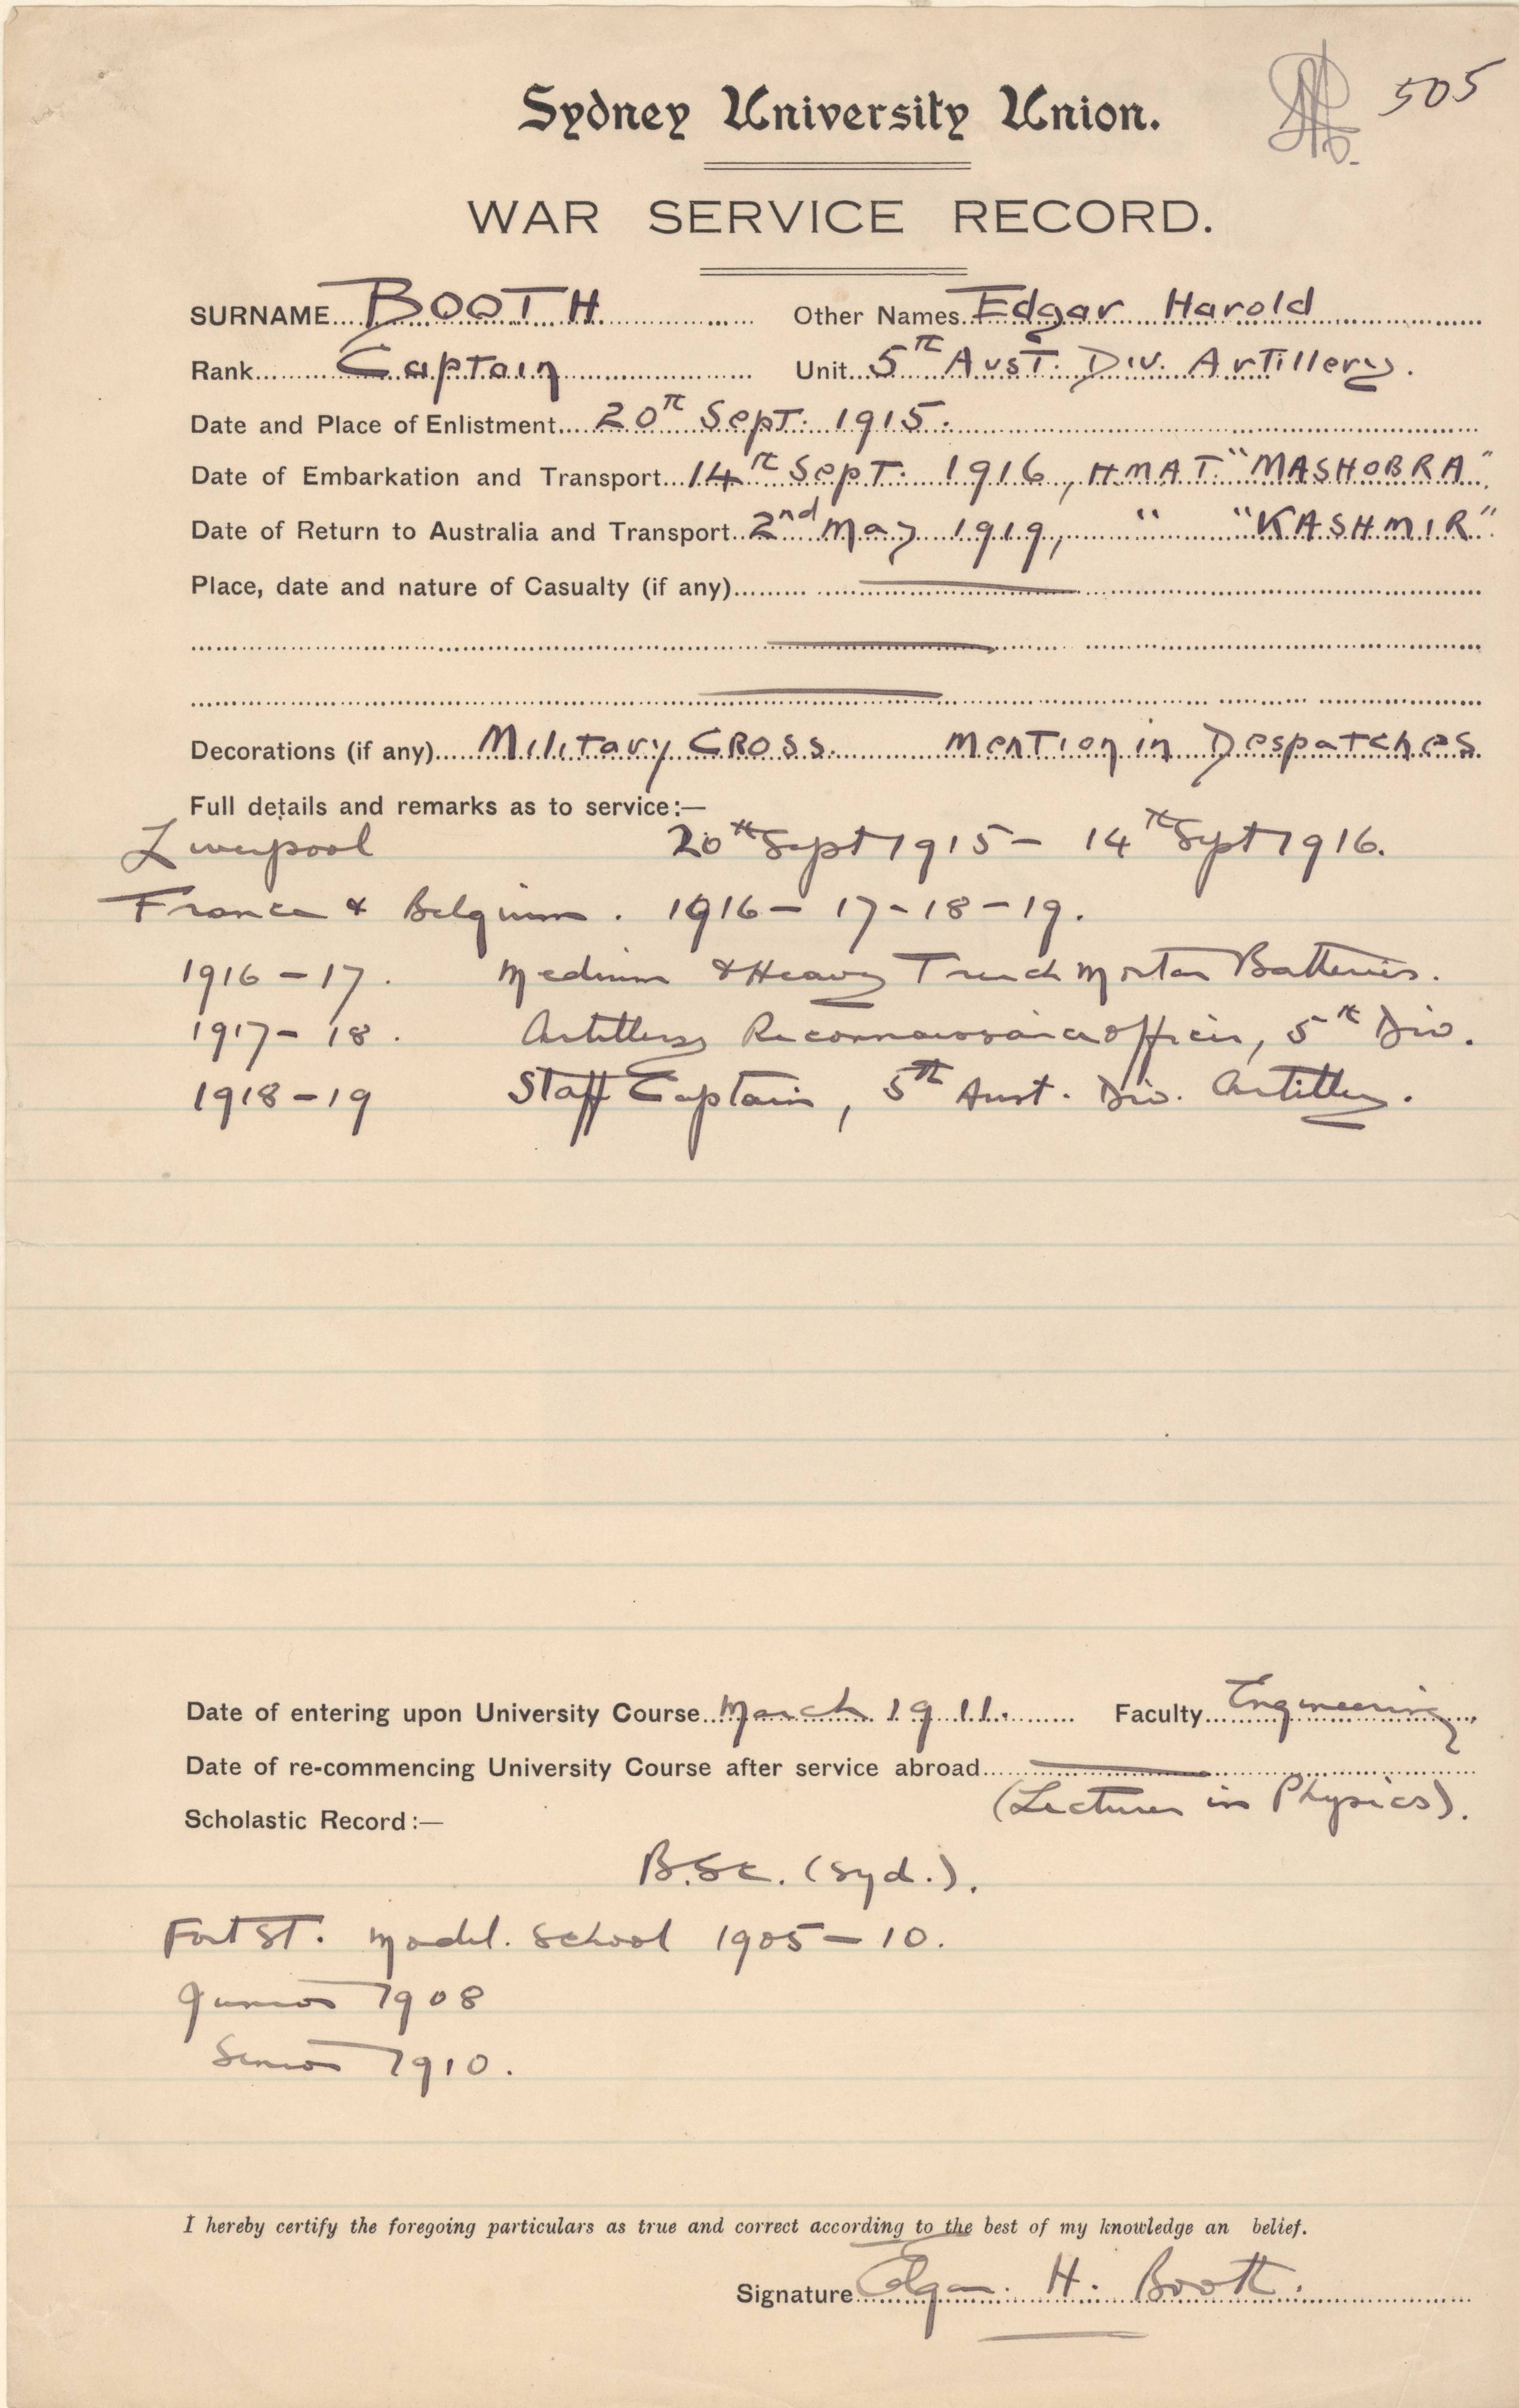 505
Sydney University Union.
WAR SERVICE RECORD.
SURNAME BOOTH Other Names Edgar Harold
Rank Captain Unit 5th Aust. Div. Artillery.
Date and Place of Enlistment 20th Sept. 1915.
Date of Embarkation and Transport 14th Sept. 1916, HMAT. "MASHOBRA".
Date of Return to Australia and Transport 2nd May 1919, " "KASHMIR".
Place, date and nature of Casualty (if any)
Decorations (if any) Military CROSS. Mention in Despatches
Full details and remarks as to service:—
Liverpool 20th Sept 1915 – 14th Sept 1916.
France & Belgium. 1916 – 17 – 18 – 19.
1916 – 17. Medium & Heavy Trench Mortar Batteries.
1917 – 18. Artillery Reconnaissance officer, 5th Div.
1918 – 19 Staff Captain, 5th Aust. Div. Artillery.
Date of entering upon University Course March 1911. Faculty Engineering
Date of re-commencing University Course after service abroad
(Lecturer in Physics).
Scholastic Record:—
B.Sc. (Syd.).
Fort St. Model. School 1905 – 10.
Junior 1908
Senior 1910.
I hereby certify the foregoing particulars as true and correct according to the best of my knowledge an belief.
Signature Edgar. H. Booth.